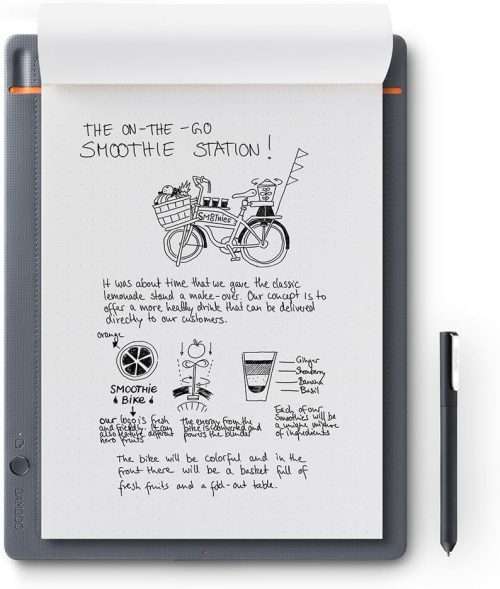 THE ON-THE-GO
SMOOTHIE STATION!
SMOOTHIES
It was about time that we gave the classic
lemonade stand a make-over. Our concept is to
offer a more healthy drink that can be delivered
directly to our customers.
orange
SMOOTHIE
BIKE
our logo is fresh
and friendly. It can
also feature different
hero fruits
the energy from the
bike is converted and
powers the blender
Ginger
Strawberry
Banana
Basil
Each of our
Smoothies will be
a unique mixture
of ingredients
The bike will be colorful and in the
front there will be a basket full of
fresh fruits and a fold-out table.
BAMBOO